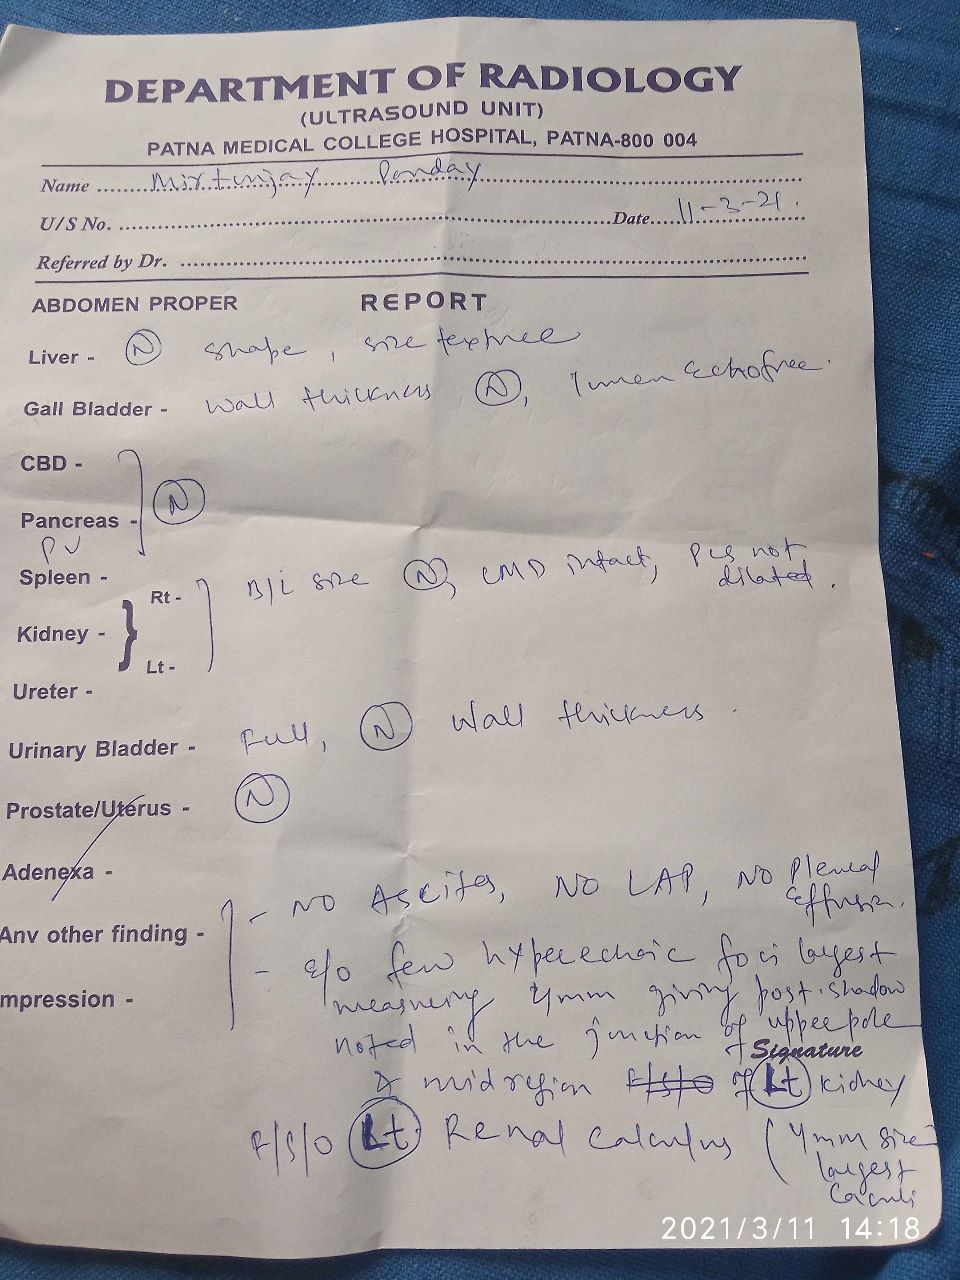 DEPARTMENT OF RADIOLOGY
(ULTRASOUND UNIT)
PATNA MEDICAL COLLEGE HOSPITAL, PATNA-800 004
Name Mirtunjay Panday
U/S No. Date 11-3-21.
Referred by Dr.
ABDOMEN PROPER REPORT
Liver - N shape, size texture
Gall Bladder - Wall thickness N, lumen Echofree.
CBD -
Pancreas - N
PV
Spleen -
Kidney - Rt - Lt - B/L size N, CMD intact, PCS not dilated.
Ureter -
Urinary Bladder - Full, N Wall thickness.
Prostate/Uterus - N
Adenexa -
- NO Ascites, NO LAP, NO Pleural Effusion.
Any other finding -
- e/o few hyperechoic foci largest
mpression - measuring 4mm giving post. shadow
noted in the junction of upper pole
Signature
& midregion F/S/O of Lt kidney
F/S/O Lt. Renal calculus (4mm size
largest
calculi
2021/3/11 14:18